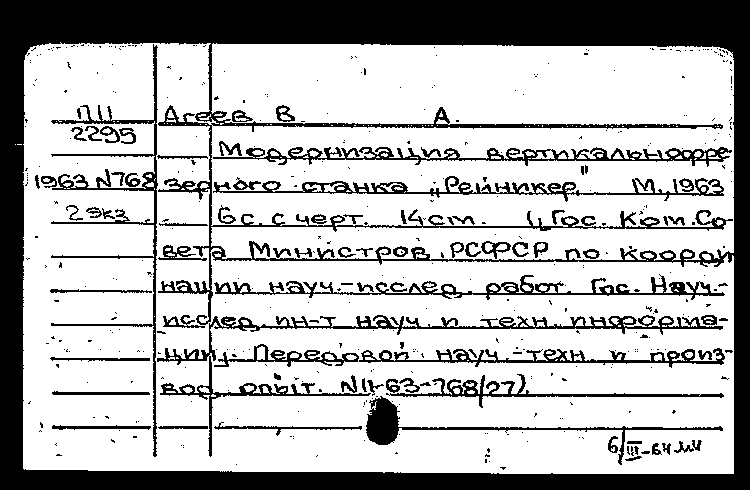 П11 Агеев, В. А.
2295
Модернизация вертикальнофре-
1963 N768 зерного станка „Рейникер" М., 1963
2 экз. 6 с. с черт. 14 см. (Гос. Ком. Со-
вета Министров РСФСР по коорди
нации науч.-исслед. работ. Гос. Науч.-
исслед. ин-т науч. и техн. информа-
ции. Передовой науч.-техн. и произ-
вод. опыт. N11-63-768/27).
6/III-64